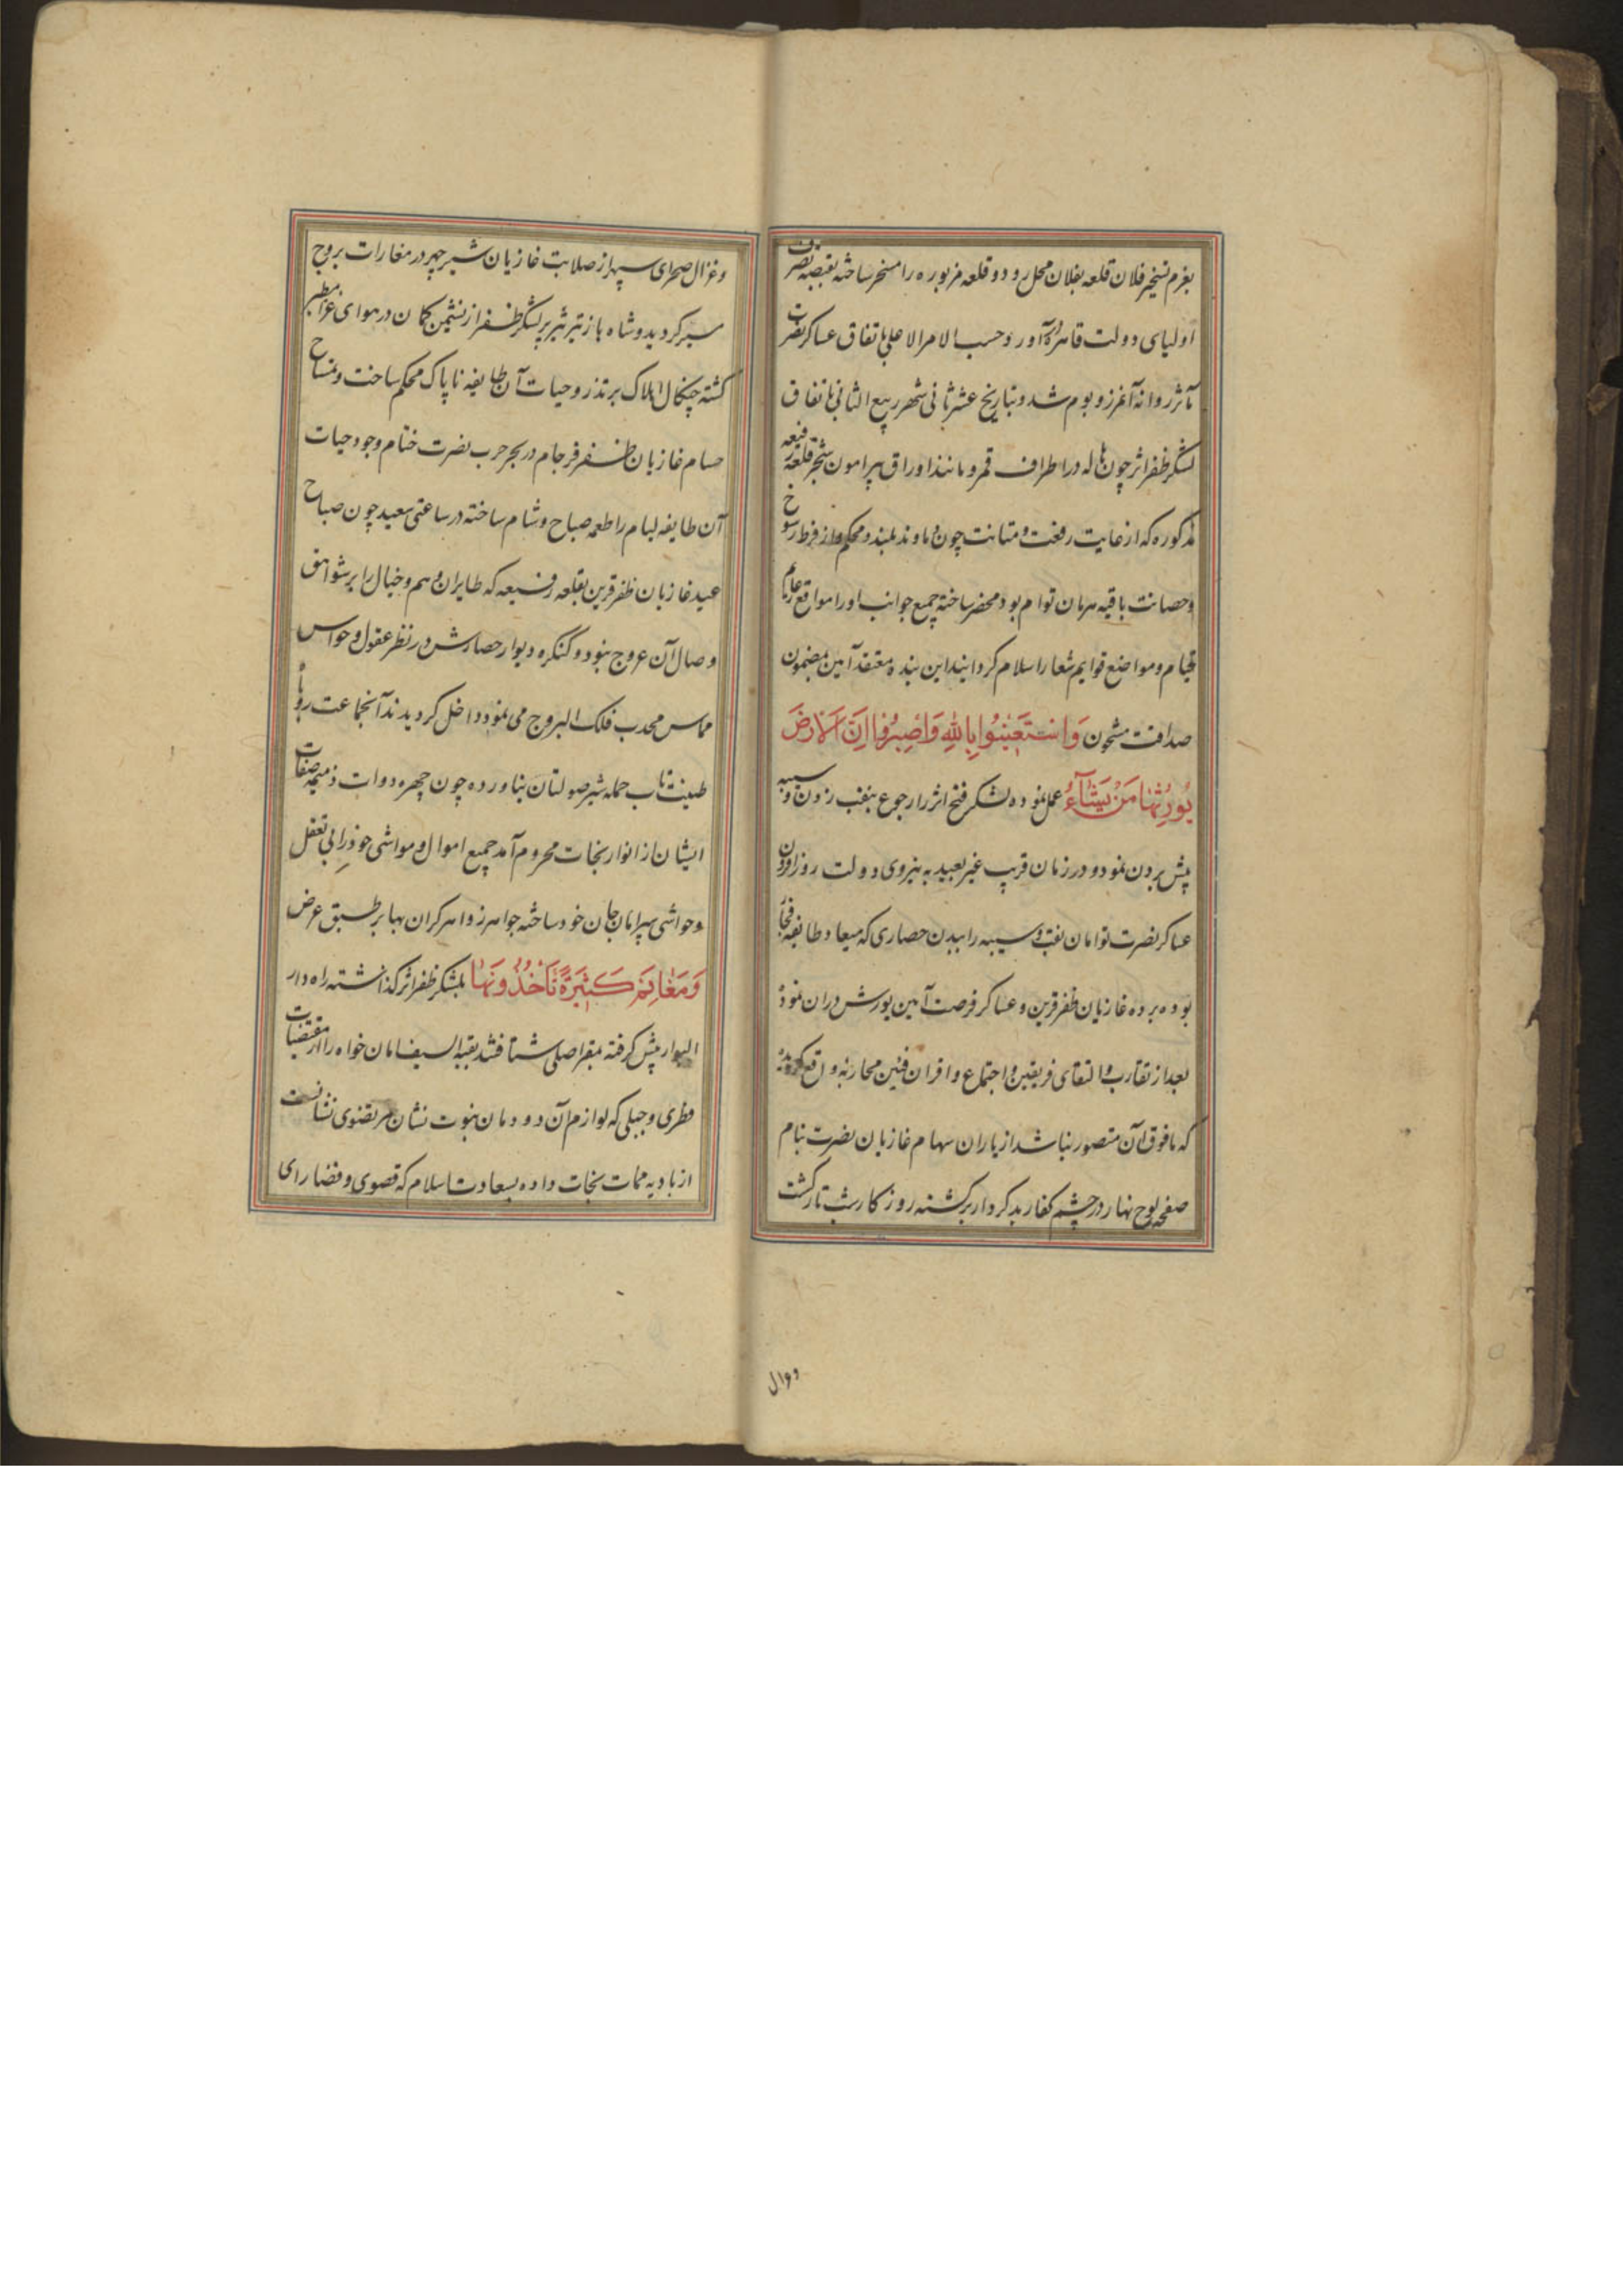 بعزم تسخیر فلان قلعه بفلان محل رود و قلعه مزبوره را مسخر ساخته بقبضه تصرف
اولیای دولت قاهره درآورد و حسب الامر الاعلی باتفاق عساکر نصرت
مآثر روانه آنمرز و بوم شد و بتاریخ عشر ثانی شهر ربیع الثانی باتفاق
لشکر ظفر اثر چون هاله در اطراف قمر و مانند اوراق پیرامون شجر قلعه رفیعه
مذکوره که از غایت رفعت و متانت چون دماوند بلند و محکم و از فرط رسوخ
و حصانت باقیه هرمان توام بود محضر ساخته جمیع جوانب او را مواقع
خیام و مواضع قوایم شعار اسلام کردانید این بنده معتقد آمین بمضمون
صداقت مشحون وَاسْتَعِينُوا بِاللهِ وَاصْبِرُوا اِنَّ الْاَرْضَ
يُورِثُهَا مَنْ يَشَآءُ عمل نموده لشکر فتح اثر را رجوع بنقب زدن و سیبه
پیش بردن نمود و در زمان قریب غیر بعید به نیروی دولت روزافزون
عساکر نصرت توامان نقب و سیبه را ببدن حصاری که میعاد طایفه فجار
بوده برده غازیان ظفر قرین و عساکر فرصت آمین یورش دران نمودند
بعد از تقارب و التقای فریقین و اجتماع و اقران فئتین محاربه واقع کردید
که مافوق آن متصور نباشد از باران سهام غازیان نصرت نیام
صفحه لوح نهار در چشم کفار بدکردار برکشته روز کار شب تار کشت
و غزال
و غزال صحرای سپهر از صلابت غازیان شیر چهر در مغارات بروج
سیر کردید و شاه باز تیر تیزپر لشکر ظفر از نشیمن کمان در هوای غزا مطیر
کشته چنکال هلاک بر تذرو حیات آن طایفه ناپاک محکم ساخت و تمساح
حسام غازیان ظفر فرجام در بحر حرب نصرت ختام وجود حیات
آن طایفه لیام را طعمه صباح و شام ساخته در ساعتی سعید چون صباح
عید غازیان ظفر قرین بقلعه رفیعه که طایران وهم و خیال را بر شواهق
وصال آن عروج نبود و کنکره دیوار حصارش در نظر عقول و حواس
مماس محدب فلک البروج می نمود داخل کردیدند آنجماعت روباه
طینت تاب حمله شیر صولتان نیاورده چون چهره دوات ذمیمه صفات
ایشان از انوار نجات محروم آمد جمیع اموال و مواشی خود را بی تعقل
و حواشی سپر امان جان خود ساخته جواهر زواهر کران بها بر طبق عرض
وَمَغَانِمَ كَثِيرَةً تَأْخُذُونَهَا بلشکر ظفر اثر کذاشته راه دار
البوار پیش کرفته بمقر اصلی شتافتند بقیة السیف امان خواه را از مقتضیات
فطری و جبلی که لوازم آن دودمان نبوت نشان مرتضوی نشانست
از بادیه ممات نجات داده بسعادت اسلام که قصوی و قضارای